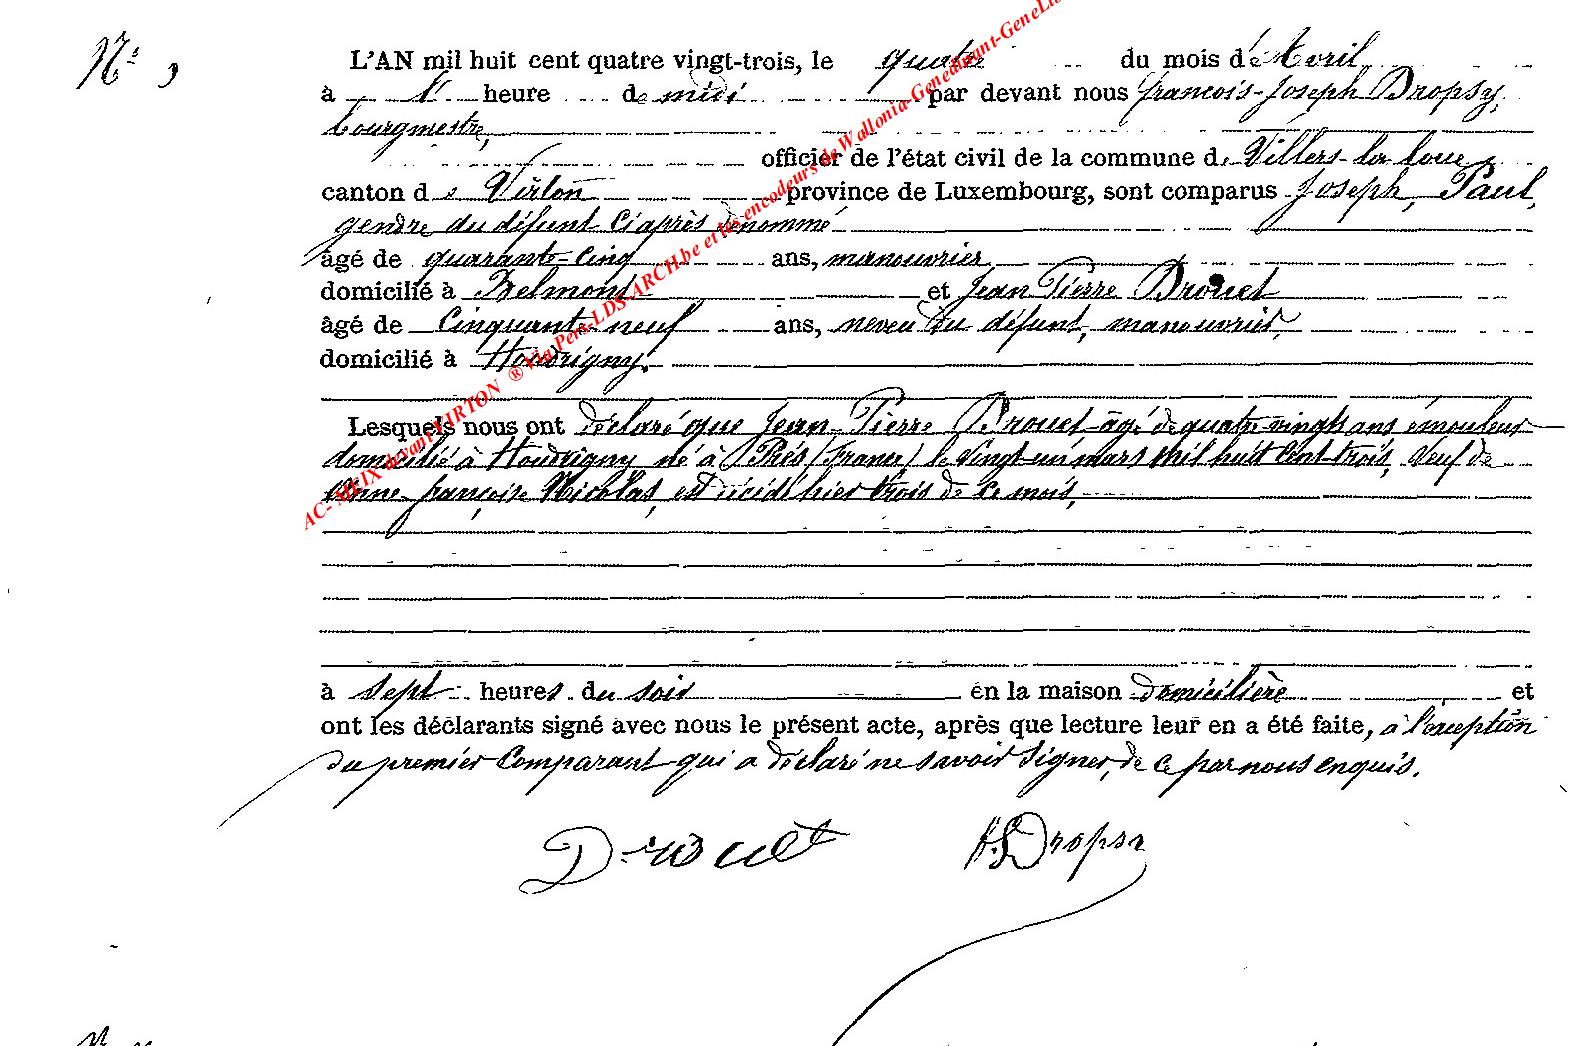 N° 9
L'AN mil huit cent quatre vingt-trois, le quatre du mois d'Avril
à heure de midi par devant nous françois-Joseph Dropsy,
bourgmestre,
officier de l'état civil de la commune de Villers-la-loue
canton de Virton province de Luxembourg, sont comparus Joseph, Paul,
gendre du défunt ci après dénommé
âgé de quarante-cinq ans, manouvrier
domicilié à Belmont et Jean Pierre Drouet
âgé de Cinquante-neuf ans, neveu du défunt, manouvrier,
domicilié à Houdrigny.
Lesquels nous ont déclaré que Jean-Pierre Drouet âgé de quatre-vingts ans émouleur
domicilié à Houdrigny né à (France) le vingt-un mars mil huit cent-trois, veuf de
Anne-françoise Nicolas, est décédé hier trois de ce mois,
à sept heures du soir en la maison domicilière et
ont les déclarants signé avec nous le présent acte, après que lecture leur en a été faite, à l'exception
du premier Comparant qui a déclaré ne savoir signer, de ce par nous enquis.
Drouet Dropsy
AC- MEIX devant VIRTON ® Via Pers-LDS-ARCH.be et les encodeurs de Wallonia-Genedinant-GeneLu